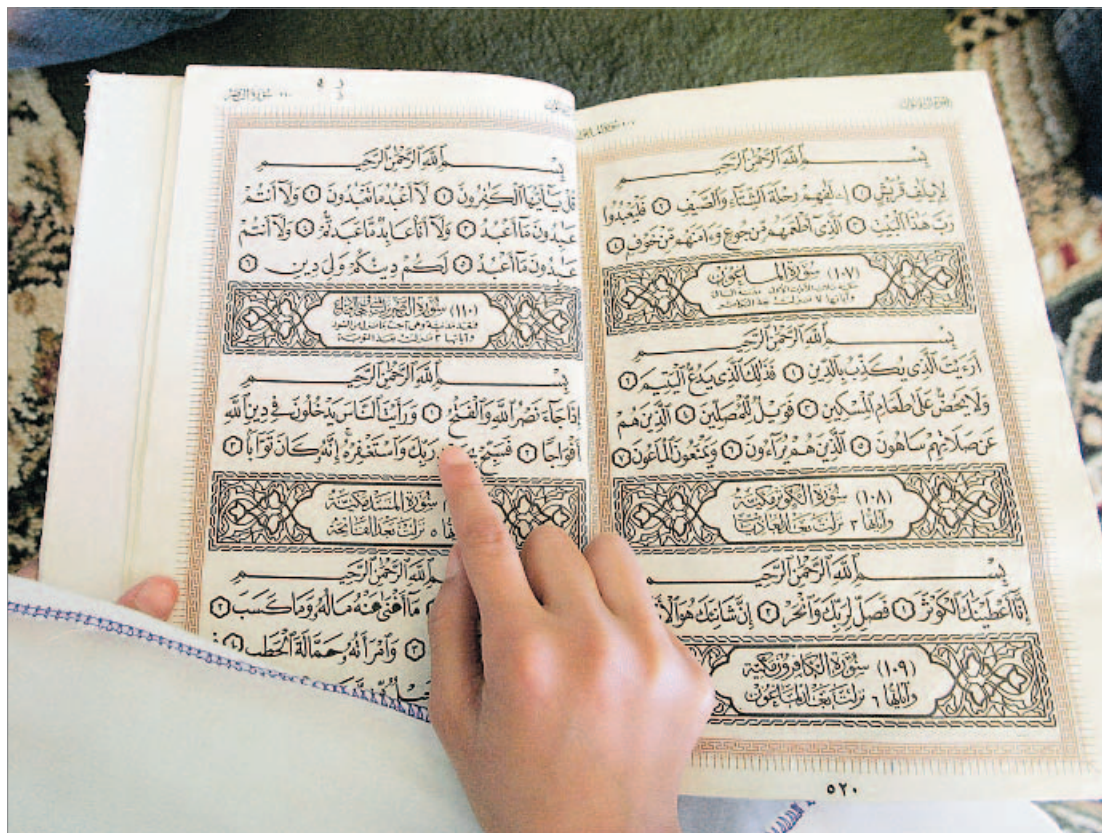 بِسْمِ اللَّهِ الرَّحْمَٰنِ الرَّحِيمِ
لِإِيلَٰفِ قُرَيْشٍ ١ إِۦلَٰفِهِمْ رِحْلَةَ الشِّتَاءِ وَالصَّيْفِ ٢ فَلْيَعْبُدُوا
رَبَّ هَٰذَا الْبَيْتِ ٣ الَّذِي أَطْعَمَهُم مِّن جُوعٍ وَءَامَنَهُم مِّنْ خَوْفٍ ٤
(١٠٧) سُورَةُ الماعُون
بِسْمِ اللَّهِ الرَّحْمَٰنِ الرَّحِيمِ
أَرَءَيْتَ الَّذِي يُكَذِّبُ بِالدِّينِ ١ فَذَٰلِكَ الَّذِي يَدُعُّ الْيَتِيمَ ٢
وَلَا يَحُضُّ عَلَىٰ طَعَامِ الْمِسْكِينِ ٣ فَوَيْلٌ لِّلْمُصَلِّينَ ٤ الَّذِينَ هُمْ
عَن صَلَاتِهِمْ سَاهُونَ ٥ الَّذِينَ هُمْ يُرَاءُونَ ٦ وَيَمْنَعُونَ الْمَاعُونَ ٧
(١٠٨) سُورَةُ الكَوثَر مَكيّة
وَآيَاتُهَا ٣ نَزَلَتْ بَعْدَ العَادِيَات
بِسْمِ اللَّهِ الرَّحْمَٰنِ الرَّحِيمِ
إِنَّا أَعْطَيْنَٰكَ الْكَوْثَرَ ١ فَصَلِّ لِرَبِّكَ وَانْحَرْ ٢ إِنَّ شَانِئَكَ هُوَ
(١٠٩) سُورَةُ الكافِرُون مَكيّة
وَآيَاتُهَا ٦ نَزَلَتْ بَعْدَ المَاعُون
٥٢٠
سورة النصر ١١٠
بِسْمِ اللَّهِ الرَّحْمَٰنِ الرَّحِيمِ
قُلْ يَٰأَيُّهَا الْكَٰفِرُونَ ١ لَا أَعْبُدُ مَا تَعْبُدُونَ ٢ وَلَا أَنتُمْ
عَٰبِدُونَ مَا أَعْبُدُ ٣ وَلَا أَنَا عَابِدٌ مَّا عَبَدتُّمْ ٤ وَلَا أَنتُمْ
عَٰبِدُونَ مَا أَعْبُدُ ٥ لَكُمْ دِينُكُمْ وَلِيَ دِينِ ٦
(١١٠) سُورَةُ النصر
بِسْمِ اللَّهِ الرَّحْمَٰنِ الرَّحِيمِ
إِذَا جَاءَ نَصْرُ اللَّهِ وَالْفَتْحُ ١ وَرَأَيْتَ النَّاسَ يَدْخُلُونَ فِي دِينِ اللَّهِ
أَفْوَاجًا ٢ فَسَبِّحْ رَبِّكَ وَاسْتَغْفِرْهُ إِنَّهُ كَانَ تَوَّابًا ٣
سُورَةُ المَسَد مَكيّة
٥ نَزَلَتْ بَعْدَ الفَاتِحَة
بِسْمِ اللَّهِ الرَّحْمَٰنِ الرَّحِيمِ
مَا أَغْنَىٰ عَنْهُ مَالُهُ وَمَا كَسَبَ ٢
٣ وَامْرَأَتُهُ حَمَّالَةَ الْحَطَبِ ٤